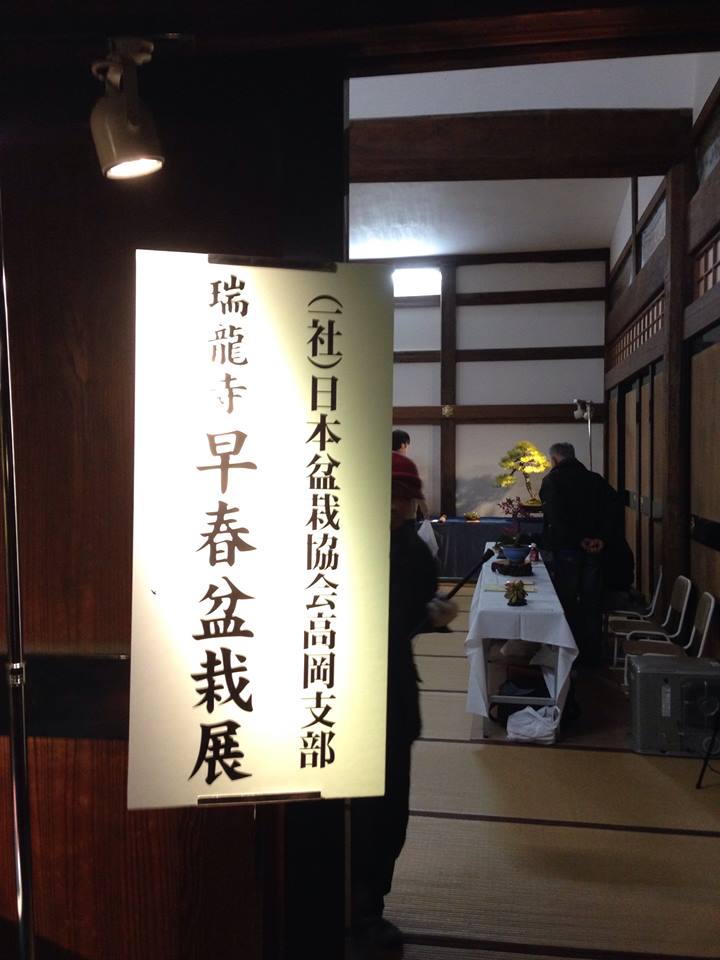 (一社)日本盆栽協会高岡支部
瑞龍寺 早春盆栽展